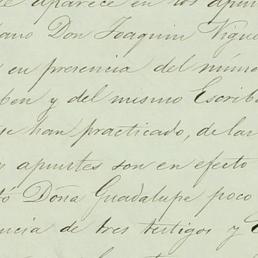 aparece en los apun
ano Don Joaquin Figue
en presencia del mismo
bon y del mismo Escriba
se han practicado, de las
apuntes son en efecto
tó Doña Guadalupe poco
encia de tres testigos y